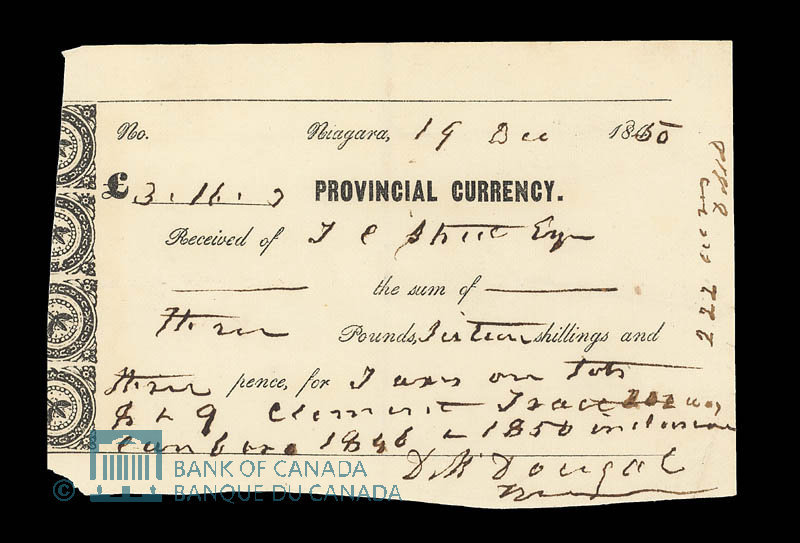 No. Niagara, 19 Dec 1850
£3.16.3 PROVINCIAL CURRENCY.
Received of T C Street Esq
the sum of
Three Pounds, Sixteen shillings and
Three pence, for Taxes on Lots
8 & 9 Clement Tract
1846 to 1850 inclusive
D. McDougal
222 acres
BANK OF CANADA
© BANQUE DU CANADA